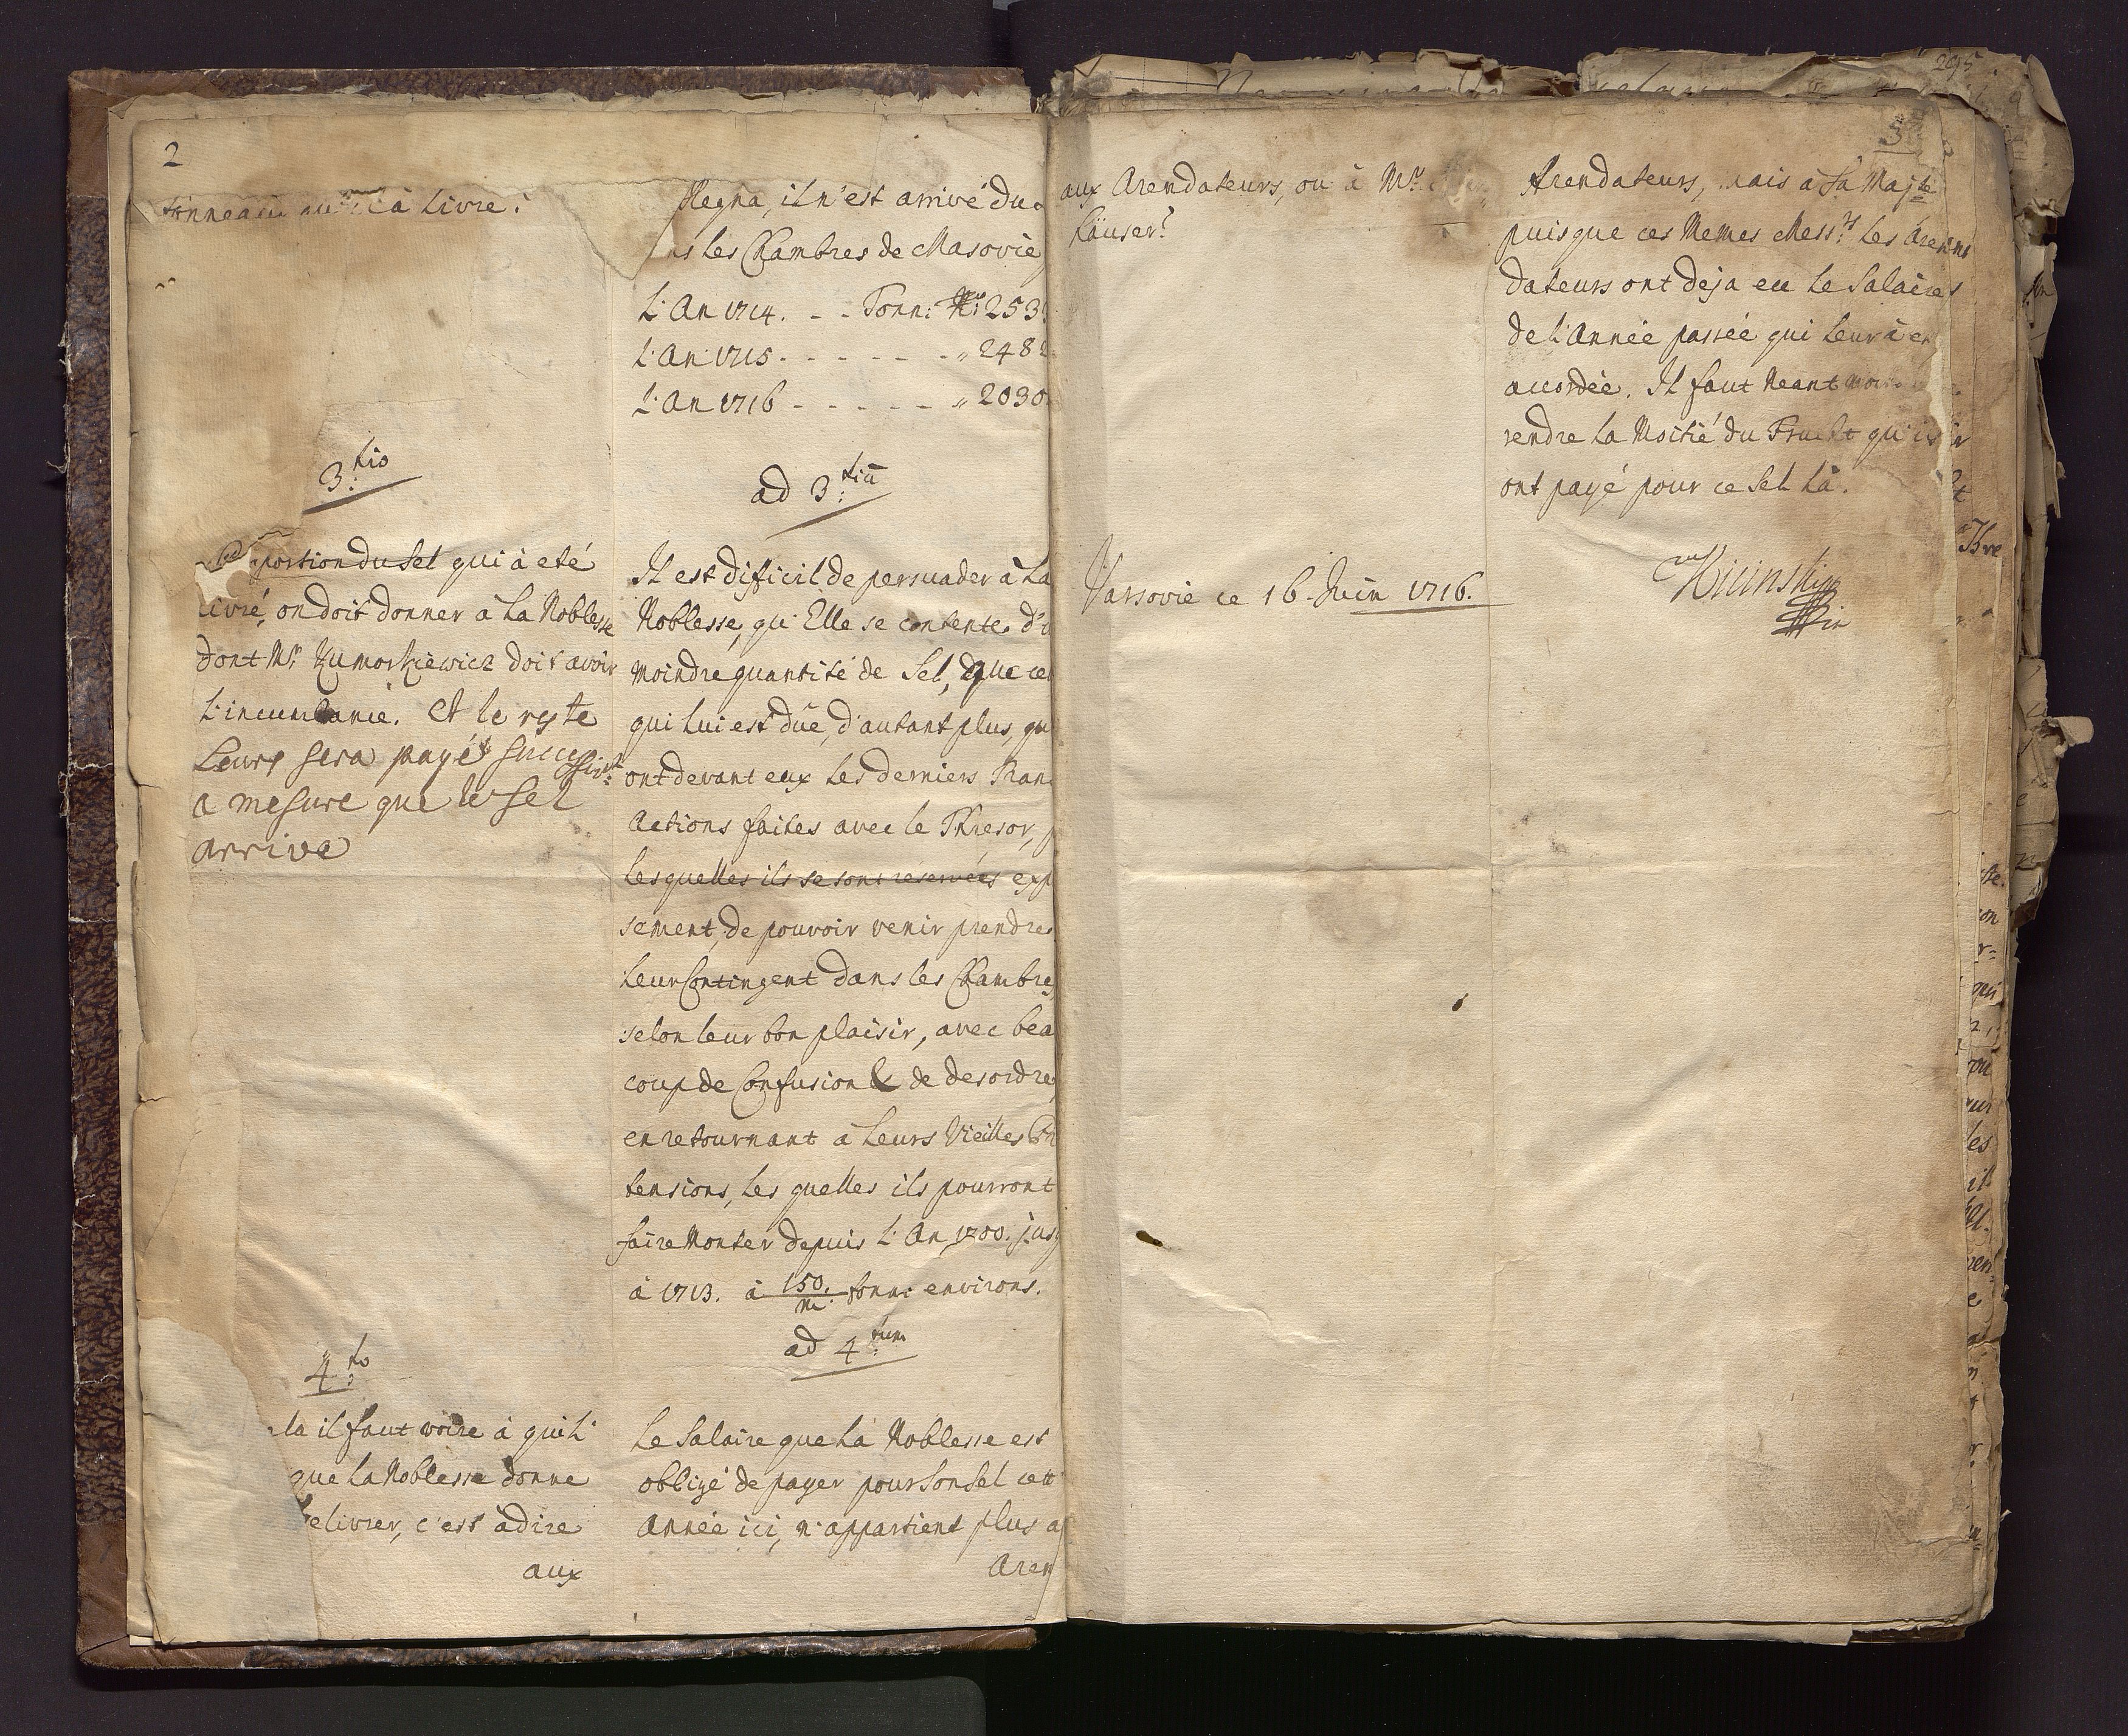 2
tonneau à Livre.
3:tio
portion du Sel qui à eté
livré, on doit donner à La Noblesse
dont Mr. Zumoskiewicz doit avoir
L'incumbance. et le reste
Leurs sera payé
a mesure que le Sel
arrive
4:to
la il faut voire à qui L'
que La Noblesse donne
elivrer, c'est àdire
aux
Regna, il n'est arrivé du
ns les Chambres de Masovie
L'An 1714. - - Tonn: No: 253
L'An 1715 - - - - - - - " 248
L'An 1716 - - - - - " 2030
ad 3:tiū
Il est dificil de persuader à La
Noblesse, qu'Elle se contente d'u
moindre quantité de Sel, que ce
qui Lui est düe, d'autant plus, qu
ont devant eux Les derniers Trans
Actions faites avec le Thresor, p
lesquelles ils se sont reservées exp
sement, de pouvoir venir prendre
Leur Contingent dans les Chambres
selon leur bon plaisir, avec beau
coup de Confusion & de desordre,
en retournant à Leurs Vieilles Pr
tensions, les quelles ils pourront
faire Monter depuis L'An 1700. jusq
à 1713. à 150./m. tonn: environs.
ad 4:tum
Le Salaire que La Noblesse est
obligé de payer pour Son Sel cett
Année ici, n'appartient plus a
Aren
aux Arendateurs, ou à Mr.
Käuser?
Varsovie ce 16. Juin 1716.
3
Arendateurs, mais à Sa Majte
puisque ces Memes Messrs Les Aren
dateurs ont deja eu Le Salaire
de L'Année passée qui Leur à e
accordée. Il faut Neantmoins
rendre La Moitié du Frucht qu'ils
ont payé pour ce Sel Là.